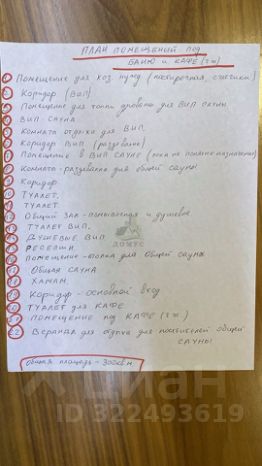 ПЛАН ПОМЕЩЕНИЙ ПОД
БАНЮ и КАФЕ (7 ж)
Помещение для хоз нужд
Коридор (ВИП)
Помещение для топки дровами для ВИП сауны
ВИП-САУНА
Комната отдыха для ВИП.
Коридор ВИП (раздевалка)
Помещение в ВИП САУНЕ (пока не понятно назначение)
Комната-раздевалка для общей сауны
Коридор
ТУАЛЕТ.
ТУАЛЕТ.
Общий зал - помывочная и душевые
ТУАЛЕТ ВИП.
ДУШЕВЫЕ ВИП
РЕСЕПШН.
Помещение - топка для общей сауны
Общая САУНА
ХАМАМ.
Коридор - основной вход
ТУАЛЕТ для КАФЕ
ПОМЕЩЕНИЕ под КАФЕ
Веранда для отдыха для посетителей общей
САУНЫ
общая площадь - 300 кв.м.
ДОМУС
циан
322493619